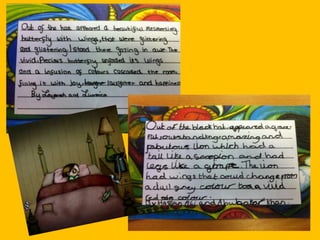 Out of the hat appeared a beautiful mesmerising
butterfly with wings that were glittering
and glistening. I stood there gazing in awe. The
vivid, Precious butterfly unfolded its wings
and a infusion of colours cascaded the room
filling it with Joy laughter and happiness
By Layinah and
Out of the black hat appeared a
astounding amazing and
fabulous lion which had a
tail like a scorpion and had
legs like a The lion
had wings that could change from
a dull grey colour to a vivid
red colour.